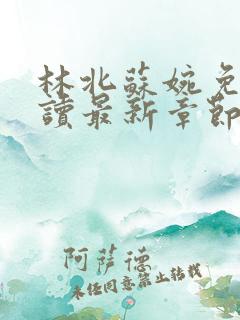 林北蘇婉免
讀最新章節
阿薩德
未经同意禁止转载